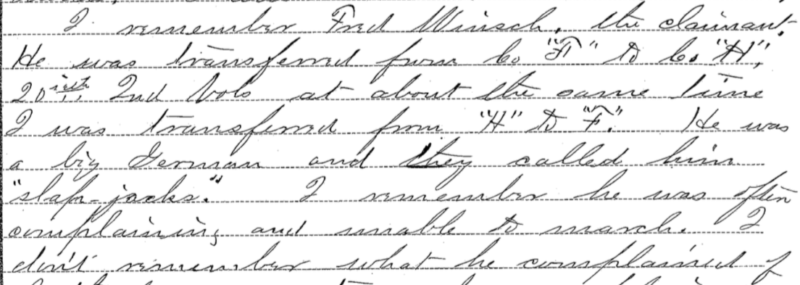 I remember Fred Winsch, the claimant.
He was transferred from Co "F" to Co. "H",
20 Ind Vols at about the same time
I was transferred from "H" to "F". He was
a big German and they called him
"slap-jacks." I remember he was often
complaining and unable to march. I
don't remember what he complained of